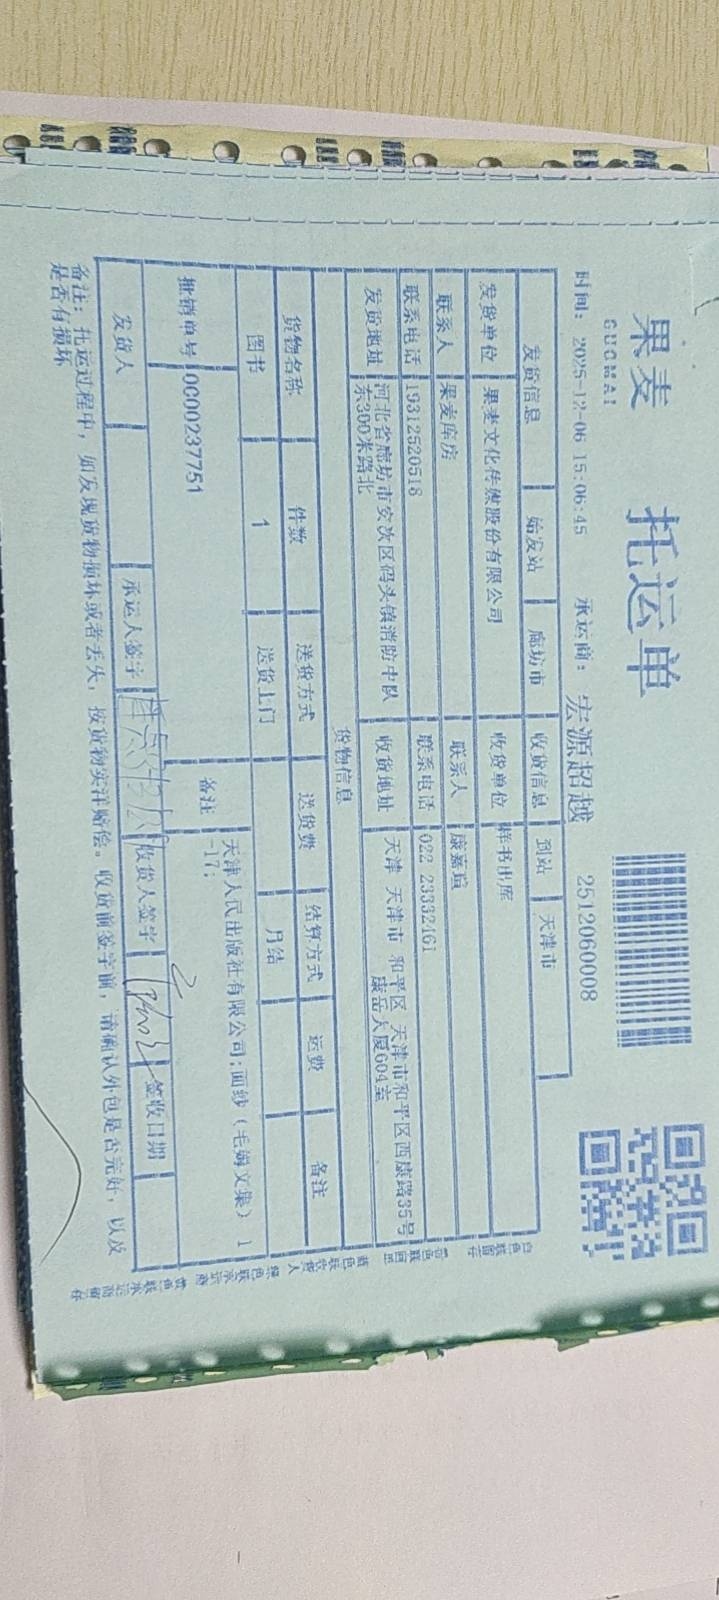 果麦
GUOMAI
托运单
时间: 2025-12-06 15:06:45 承运商: 宏源超越 2512060008
发货信息 始发站 廊坊市 收货信息 到站 天津市
发货单位 果麦文化传媒股份有限公司 收货单位 样书出库
联系人 果麦库房 联系人 康嘉瑄
联系电话 19312520518 联系电话 022 23332461
发货地址 河北省廊坊市安次区码头镇消防中队东300米路北 收货地址 天津 天津市 和平区 天津市和平区西康路35号康岳大厦604室
货物信息
货物名称 件数 送货方式 送货费 结算方式 运费 备注
图书 1 送货上门 月结
批销单号 0000237751 备注 天津人民出版社有限公司;面纱（毛姆文集）1
-17;
发货人 承运人签字 收货人签字 签收日期
备注: 托运过程中, 如发现货物损坏或者丢失, 按货物实洋赔偿。收货前签字前, 请确认外包是否完好, 以及
是否有损坏